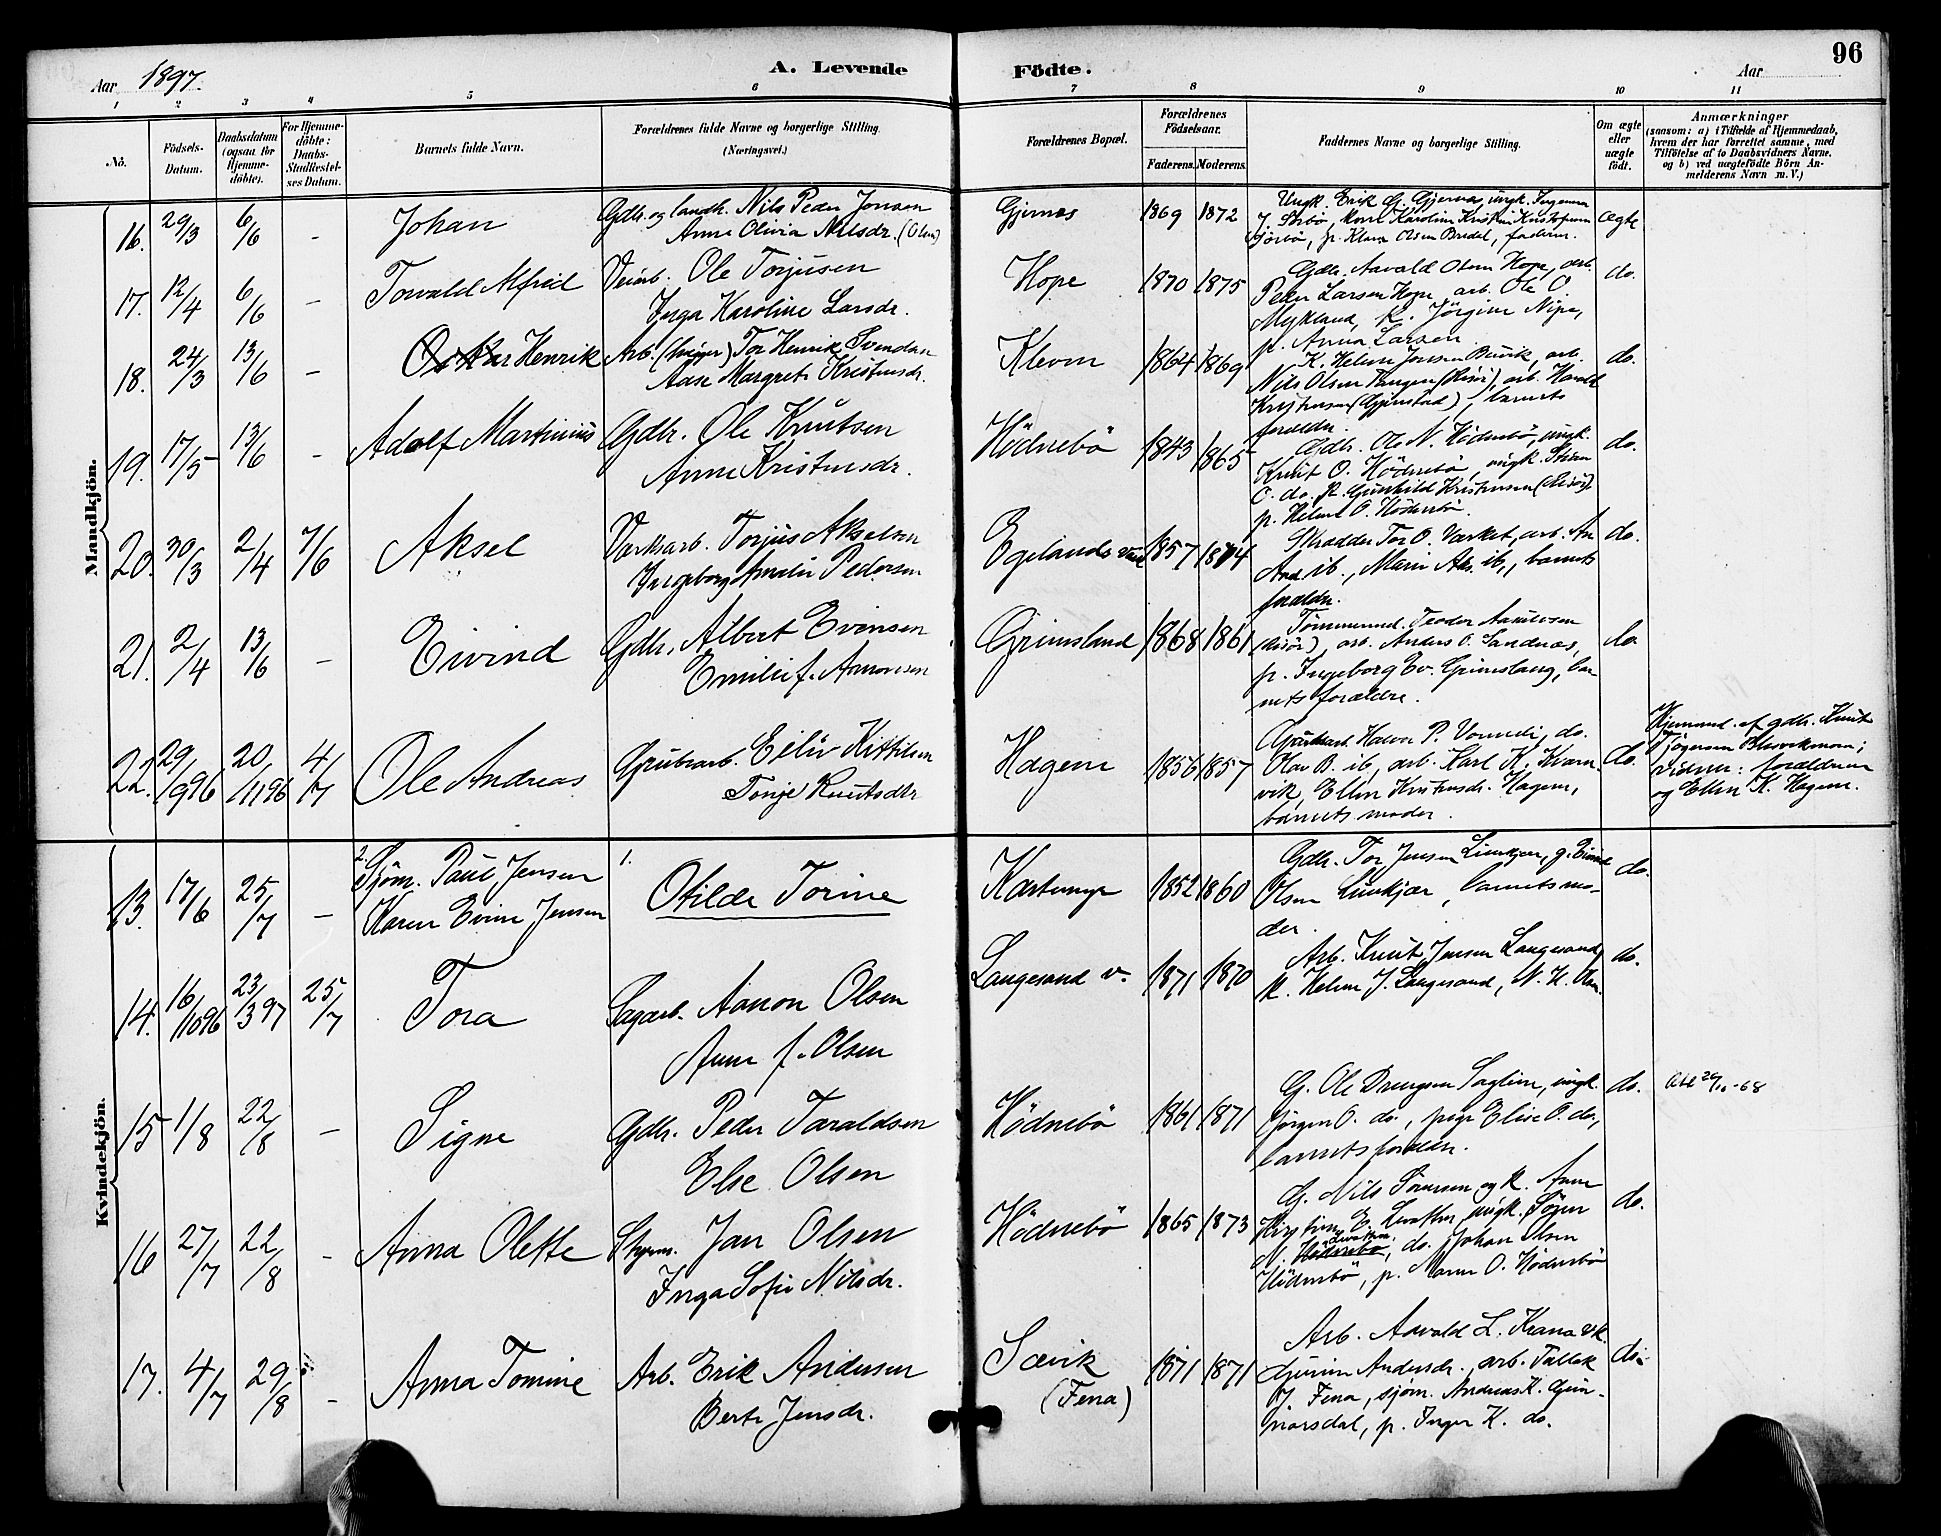 96
Aar 1897.
A. Levende
Födte.
Aar
1 2 3 4 5 6 7 8 9 10 11
No.
Födsels-
Datum.
Daabsdatum
(ogsaa for
Hjemme-
döbte).
For Hjemme-
döbte:
Daabs-
Stadfæstel-
ses Datum.
Barnets fulde Navn.
Forældrenes fulde Navne og borgerlige Stilling.
(Næringsvei.)
Forældrenes Bopæl.
Forældrenes
Födselsaar.
Faderens. Moderens.
Faddernes Navne og borgerlige Stilling.
Om ægte
eller
uægte
födt.
Anmærkninger
(saasom: a) i Tilfælde af Hjemmedaab,
hvem der har forrettet samme, med
Tilföielse af to Daabsvidners Navne,
og b) ved uægtefödte Börn An-
melderens Navn m. V.)
Mandkjön.
16. 29/3 6/6 - Johan
Gdbr. og landh. Nils Peder Jensen
Anne Olivia Nilsdr. (Olsen)
Gjernes 1869 1872
Ungk. Erik G. Gjernes, ungk. Ingeman
fadren.
ægte
17. 12/4 6/6 - Torvald Alfred
Veiarb. Ole Torjusen
Inga Karoline Larsdr.
Hope 1870 1875
Gdbr. Aavald Olsen Hope, arb.
Peder Larsen Hope, arb. Ole O.
Mykland, k. Jörgine Nipe,
p. Anna Larsen.
do.
18. 24/3 13/6 - Oskar Henrik
Arb. Tor Henrik Svendsen
Aase Margrete Kristensdr.
Kleven 1864 1869
K. Helene Jensen Buvik, arb.
Nils Olsen Tangen (Risör), arb. Harald
Kristensen (Gjerstad), barnets
forældre.
do.
19. 17/5 13/6 - Adolf Martinius
Gdbr. Ole Knutsen
Anne Kristensdr.
Hödnebö 1843 1865
Gdbr. Ole N. Hödnebö, ungk.
Knut O. Hödnebö, ungk. Steen
O. do. k. Gunhild Kristensen (Risör)
p. Helene O. Hödnebö.
do.
20. 30/3 2/4 7/6 Aksel
Værksarb. Torjus Akselsen
Ingeborg Amalie Pedersen
Egelands værk 1857 1874
Skrædder Tor O. Værket, arb. An.
And. ib., Marie Aks. ib., barnets
forældre.
do.
21. 2/4 13/6 - Eivind
Gdbr. Albert Evensen
Emilie f. Aanonsen
Grimsland 1868 1861
Tömmermd. Teodor
(Risör), arb. Anders O. Sandnæs,
p. Ingeborg Ev. Grimsland, bar-
nets forældre.
do
22. 29/9 96 20/11 96 4/7 Ole Andreas
Grubearb. Eiliv Kittilsen
Tonje Knutsdtr
Hagene 1856 1857
Grubearb. Halvor P. Vormeli, do.
Olav B. ib, arb. Karl K. Kvam-
vik, Ellen Kristensdr. Hagene,
barnets moder.
do.
Hjemmed. af gdbr. Knut
Jörgensen
vidner: forældrene
og Ellen K. Hagene.
Kvindekjön.
13. 17/6 25/7 -
2. Sjöm. Paul Jensen
Karen Evine Jensen
1. Otilde Torine
Kastmyr 1852 1860
Gdbr. Tor Jensen Lunkjær, g. Eivind
Olsen Lunkjær, barnets mo-
der.
do.
14. 16/10 96 23/3 97 25/7 Tora
Sagarb. Aanon Olsen
Anne f. Olsen
Laugesand v. 1871 1870
Arb. Knut Jensen Laugesand,
k. Helene J. Laugesand, N. K. Olsen.
do.
15 1/8 22/8 - Signe
Gdbr. Peder Taraldsen
Else Olsen
Hödnebö 1861 1871
G. Ole Drengsen Saglien, ungk.
Jörgen O. do., pige Elise O. do.,
barnets forældre.
do.
16 27/7 22/8 - Anna Olette
Styrm. Jan Olsen
Inga Sofie Nilsdr.
Hödnebö 1865 1873
G. Nils Sörensen og k. Anne
Kirstine E. ungk. Sören
N. Hödnebö, do. Johan Olsen
Hödnebö, p. Maren O. Hödnebö
do.
17. 4/7 29/8 - Anna Tomine
Arb. Erik Andersen
Berte Jensdr.
Sævik
(Fena)
1871 1871
Arb. Aavald L. Krana og k.
Gunine Andersdr., arb. Tallak
J. Fena, sjöm. Andreas K. Gun-
narsdal, p. Inger K. do.
do.